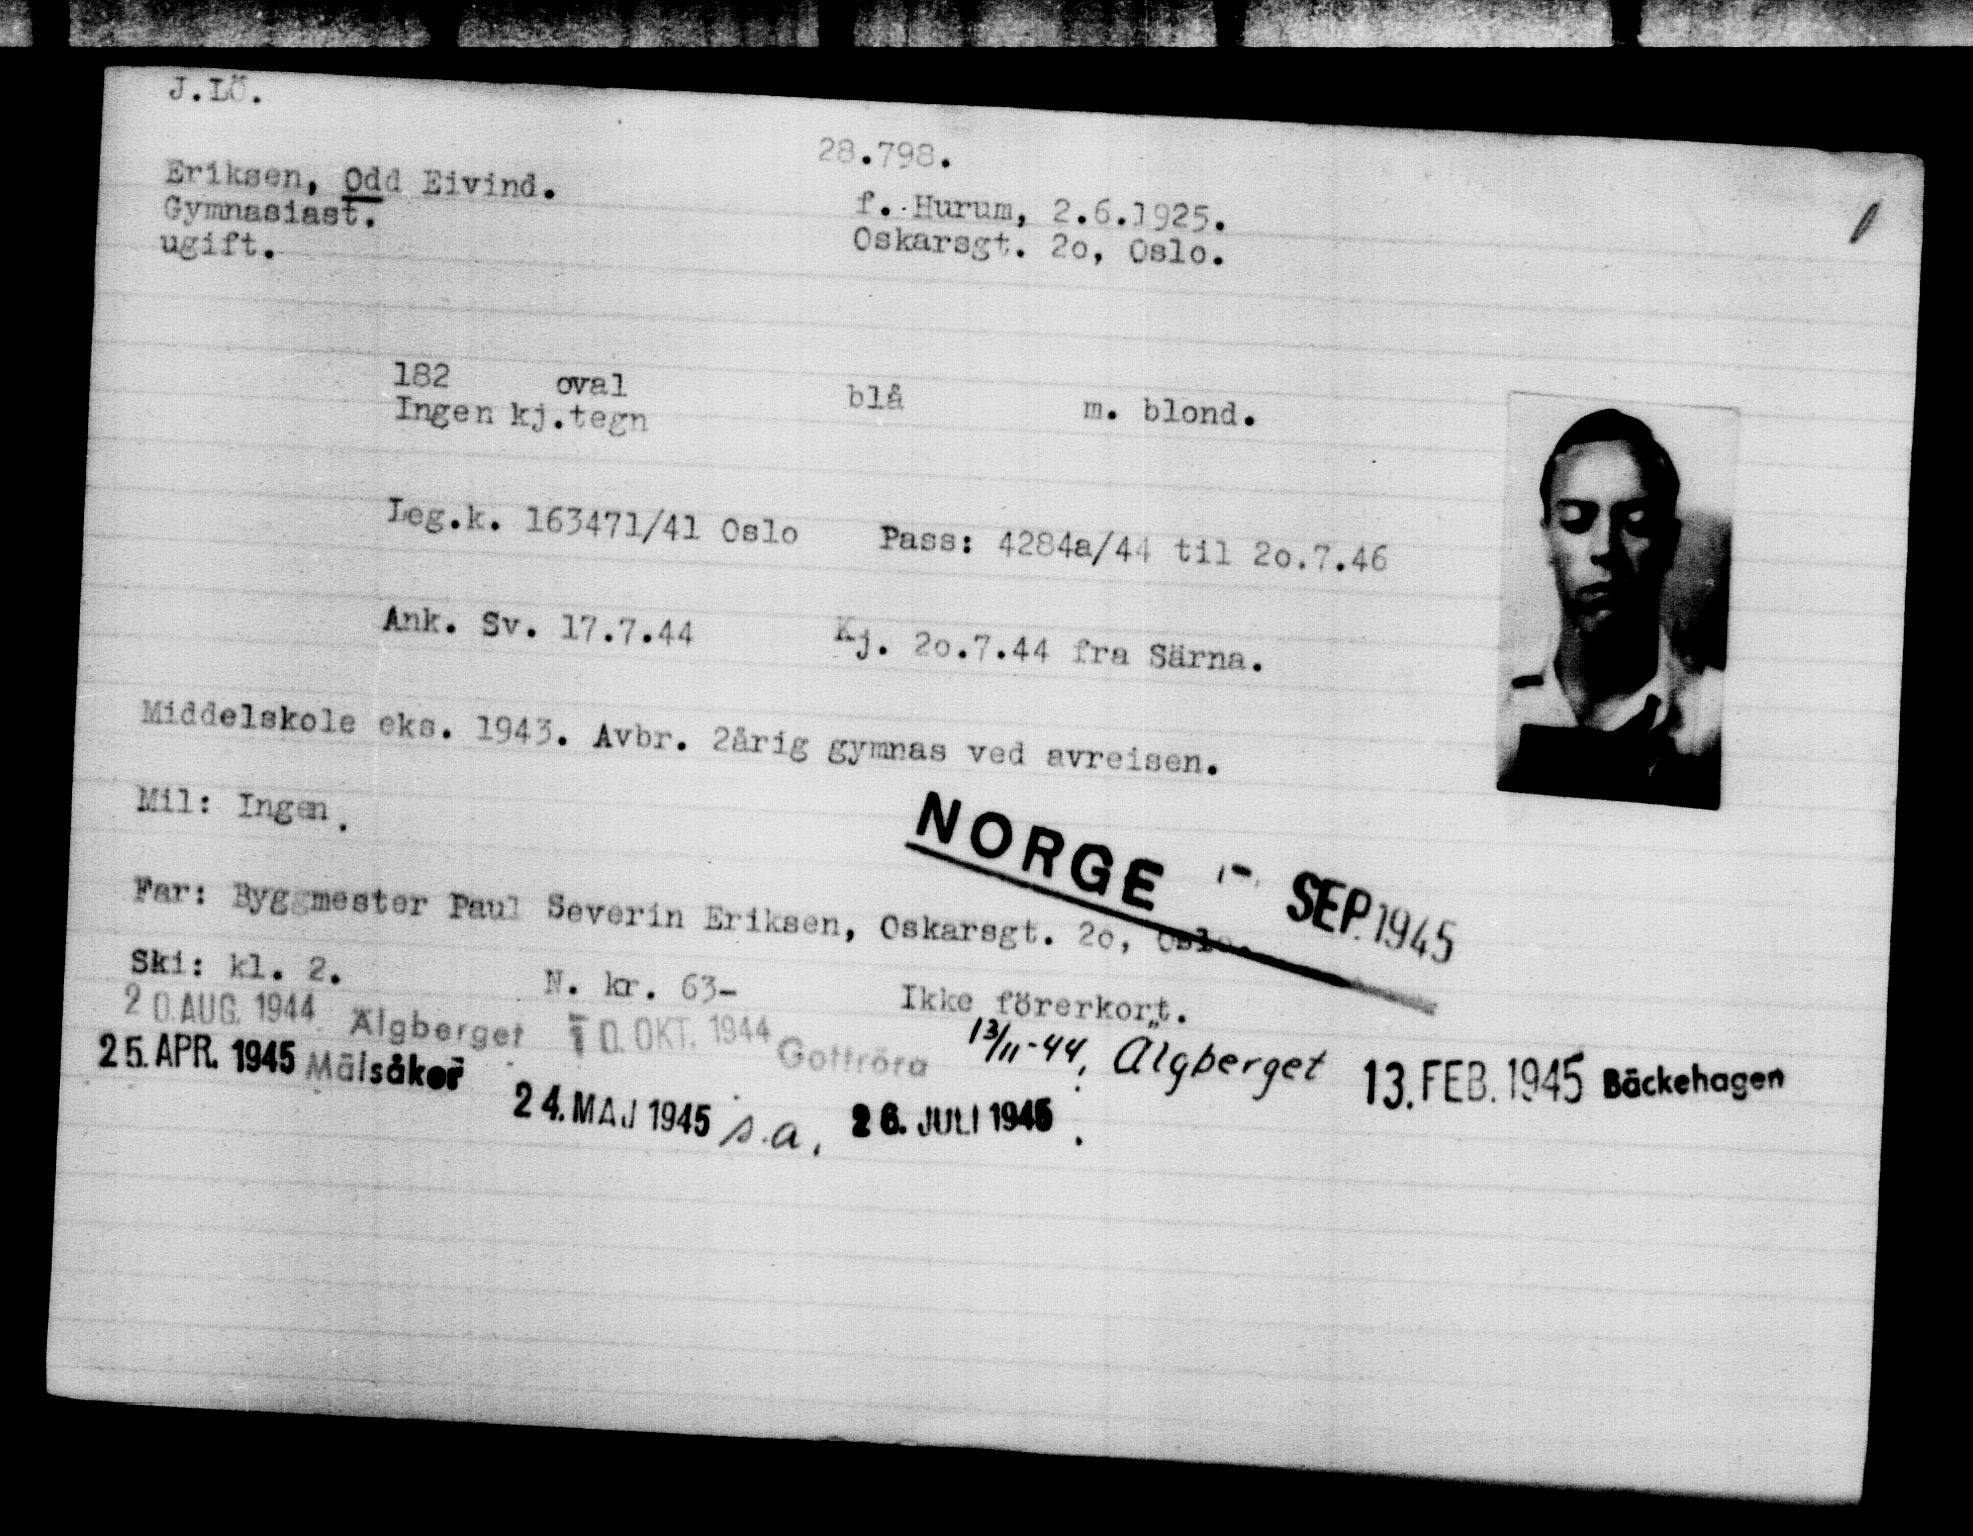 J.LÖ.
28.798.
Eriksen, Odd Eivind.
f. Hurum, 2.6.1925.
Gymnasiast.
Oskarsgt. 2o, Oslo.
ugift.
182 oval blå m. blond.
Ingen kj.tegn
Leg.k. 163471/41 Oslo Pass: 4284a/44 til 2o.7.46
Ank. Sv. 17.7.44 Kj. 2o.7.44 fra Särna.
Middelskole eks. 1943. Avbr. 2årig gymnas ved avreisen.
Mil: Ingen.
NORGE - SEP. 1945
Far: Byggmester Paul Severin Eriksen, Oskarsgt. 2o, Oslo.
Ski: kl. 2. N. kr. 63- Ikke förerkort.
20. AUG. 1944 Älgberget 10. OKT. 1944 Gottröra 13/11-44, Älgberget 13. FEB. 1945 Bäckehagen
25. APR. 1945 Mälsåker 24. MAJ 1945 s.a. 26. JULI 1945.